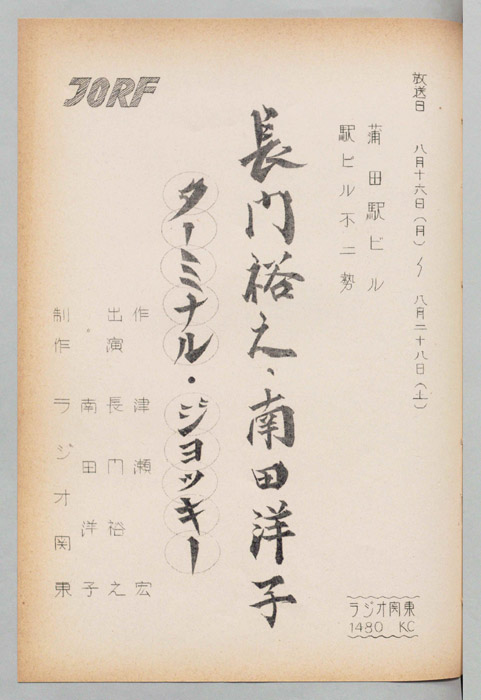 JORF
放送日 八月十六日(月)〜八月二十八日(土)
蒲田駅ビル
駅ビル不二勢
長門裕之、南田洋子
ターミナル・ジョッキー
作 津瀬宏
出演 長門裕之
南田洋子
制作 ラジオ関東
ラジオ関東
1480 KC